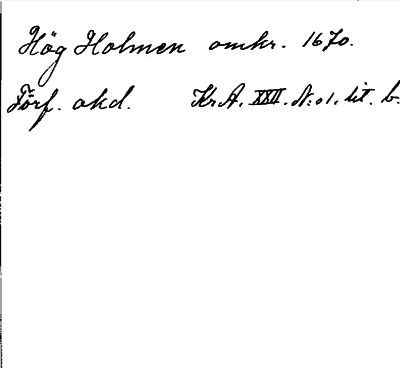 Hög Holmen omkr. 1670.
Förf. okd. KrA. XXII. N:o1. lit. b.